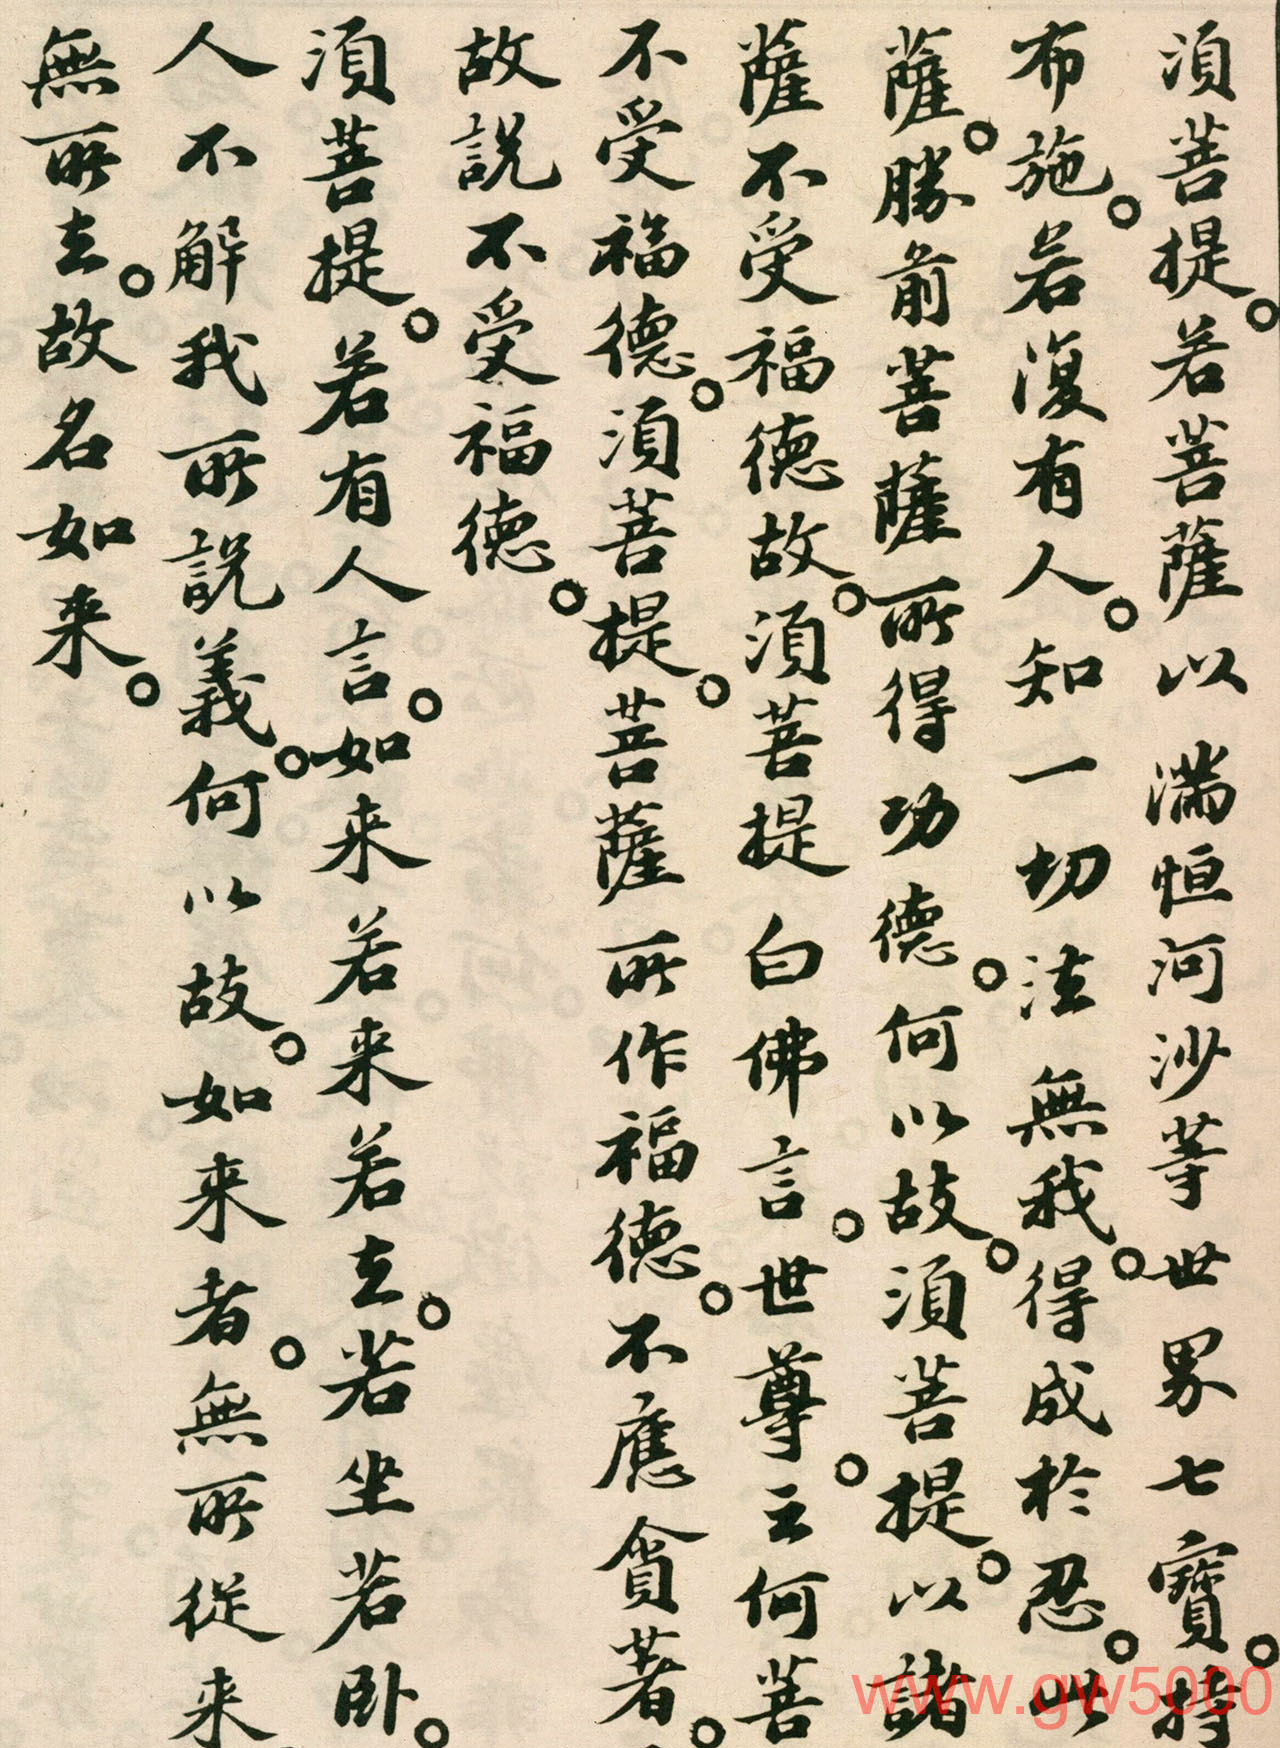 湏菩提。若菩薩以滿恒河沙等世界七寶。持
布施。若復有人。知一切法無我。得成於忍。此
薩。勝前菩薩所得功德。何以故。湏菩提。以諸
薩不受福德故。湏菩提白佛言。世尊。云何菩
不受福德。湏菩提。菩薩所作福德。不應貪著。
故說不受福德。
湏菩提。若有人言。如来若来若去。若坐若卧。
人不解我所說義。何以故。如来者。無所從来
無所去。故名如来。
www.gw5000